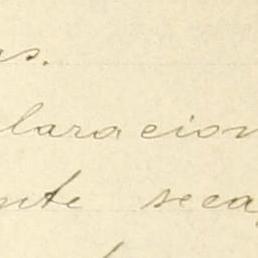 laracion
nte seca